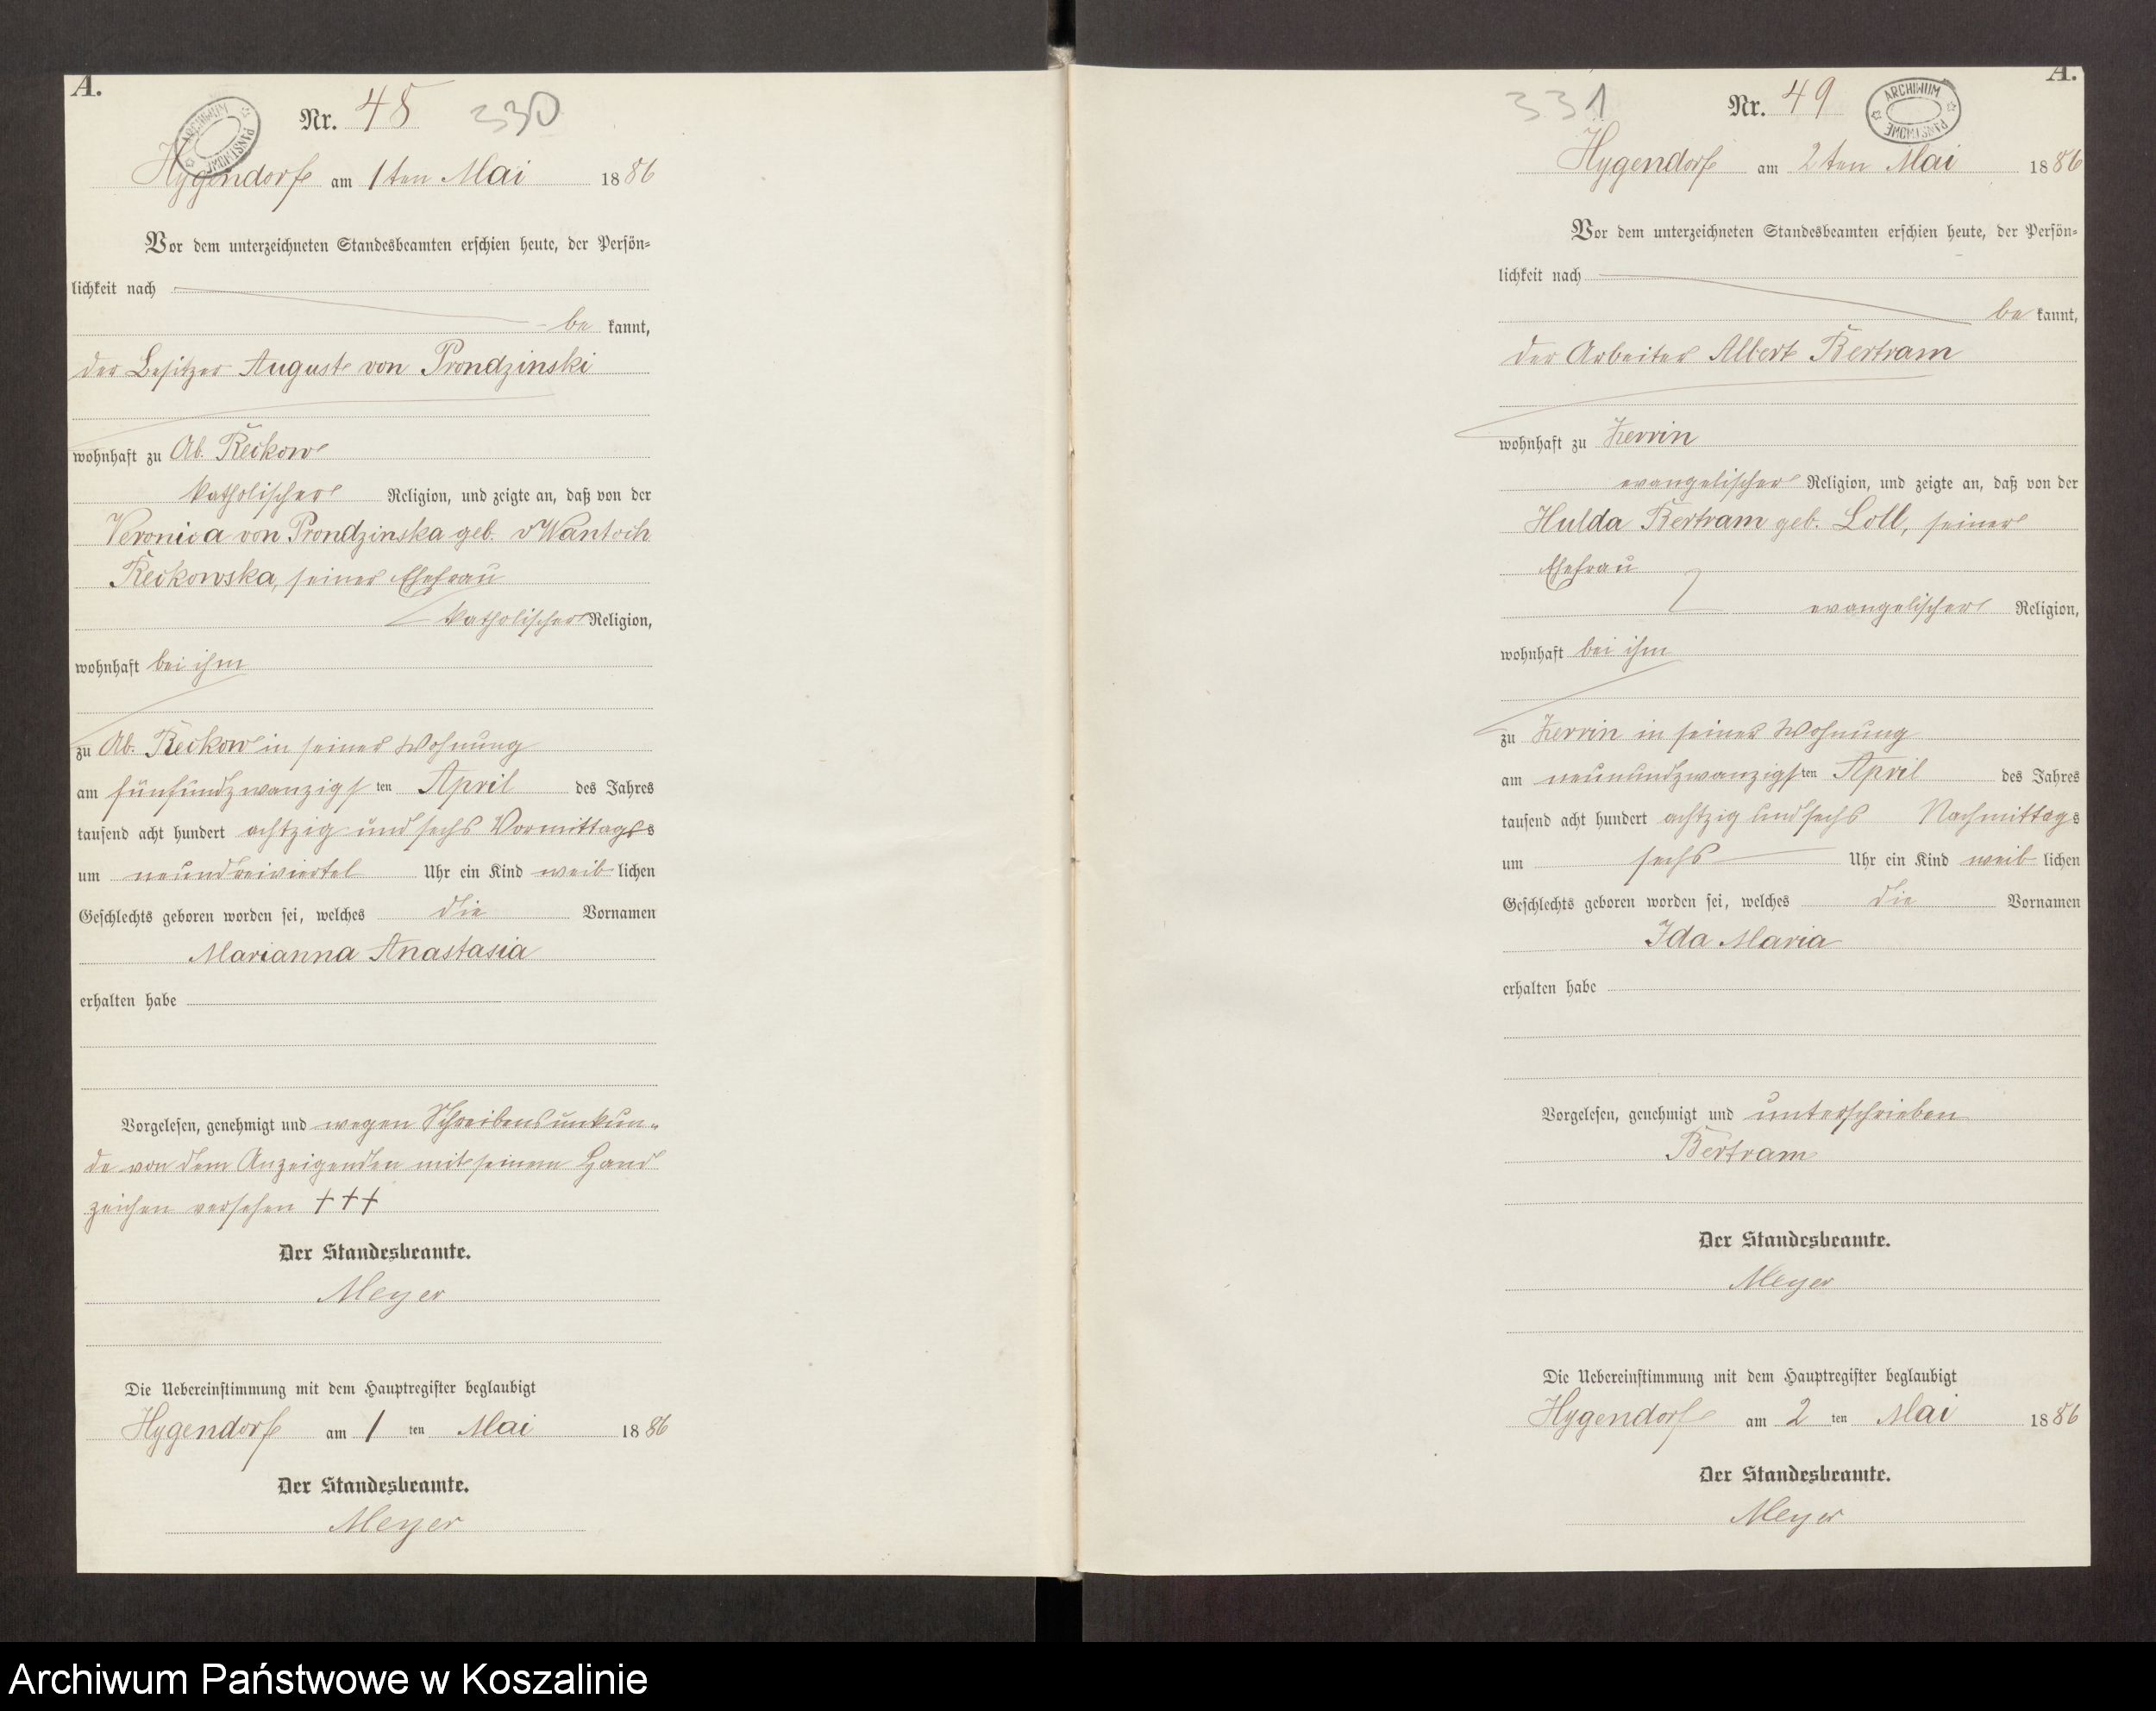 A.
Nr. 48 330
ARCHIWUM PAŃSTWOWE
Hygendorf am 1ten Mai 1886
Vor dem unterzeichneten Standesbeamten erschien heute, der Persön=
lichkeit nach
be kannt,
der Besitzer August von Prondzinski
wohnhaft zu Ab. Reckow
katholischer Religion, und zeigte an, daß von der
Veronica von Prondzinska geb. v Wantoch
Reckowska, seiner Ehefrau
katholischer Religion,
wohnhaft bei ihm
zu Ab. Reckow in seiner Wohnung
am fünfundzwanzigs ten April des Jahres
tausend acht hundert achtzig und sechs Vormittags
um neundreiviertel Uhr ein Kind weib lichen
Geschlechts geboren worden sei, welches die Vornamen
Marianna Anastasia
erhalten habe
Vorgelesen, genehmigt und wegen Schreibensunkun-
de von dem Anzeigenden mit seinem Hand
zeichen versehen +++
Der Standesbeamte.
Meyer
Die Uebereinstimmung mit dem Hauptregister beglaubigt
Hygendorf am 1 ten Mai 1886
Der Standesbeamte.
Meyer
A.
331 Nr. 49
ARCHIWUM PAŃSTWOWE
Hygendorf am 2ten Mai 1886
Vor dem unterzeichneten Standesbeamten erschien heute, der Persön=
lichkeit nach
be kannt,
der Arbeiter Albert Bertram
wohnhaft zu Zerrin
evangelischer Religion, und zeigte an, daß von der
Hulda Bertram geb. Loll, seiner
Ehefrau
evangelischer Religion,
wohnhaft bei ihm
zu Zerrin in seiner Wohnung
am neunundzwanzigs ten April des Jahres
tausend acht hundert achtzig und sechs Nachmittags
um sechs Uhr ein Kind weib lichen
Geschlechts geboren worden sei, welches die Vornamen
Ida Maria
erhalten habe
Vorgelesen, genehmigt und unterschrieben
Bertram
Der Standesbeamte.
Meyer
Die Uebereinstimmung mit dem Hauptregister beglaubigt
Hygendorf am 2 ten Mai 1886
Der Standesbeamte.
Meyer
Archiwum Państwowe w Koszalinie